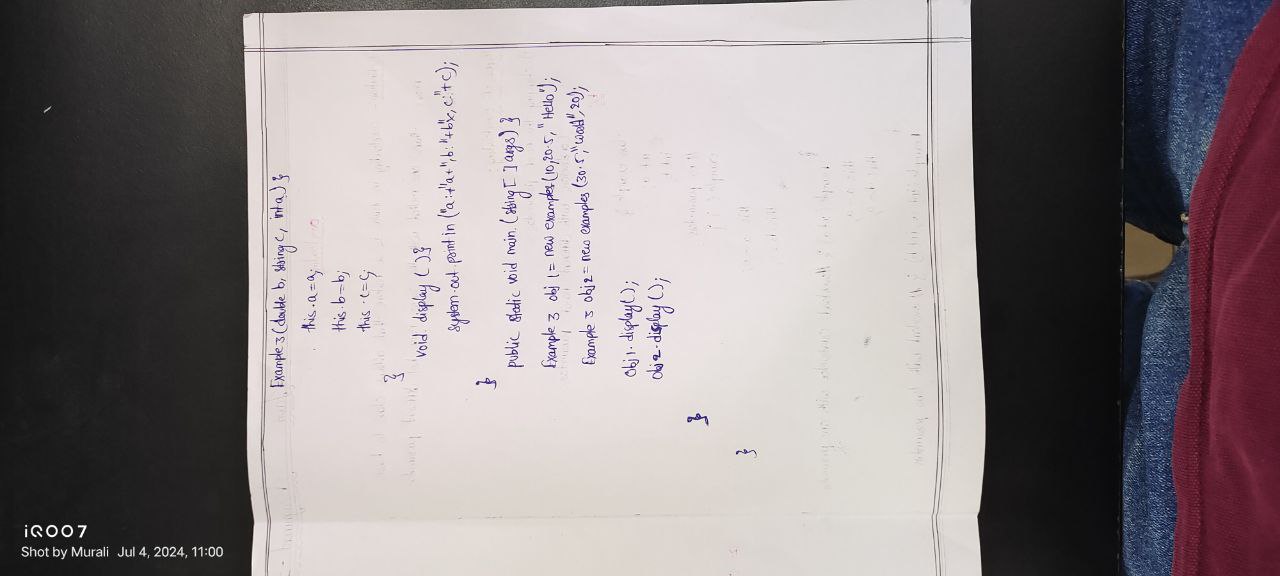 Example 3 (double b, string c, int a) {
this.a = a;
this.b = b;
this.c = c;
}
void display () {
system.out.println ("a:"+a+",b:"+b+",c:"+c);
}
public static void main (string [ ] args) {
Example 3 obj 1 = new examples (10, 20.5, "Hello");
Example 3 obj 2 = new examples (30.5, "World", 20);
obj 1. display ( );
obj 2. display ( );
}
}
iQOO 7
Shot by Murali Jul 4, 2024, 11:00